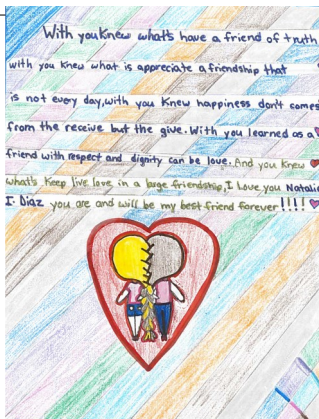 With you Knew what's have a friend of truth
with you knew what is appreciate a friendship that
is not every day, with you Knew happiness don't comes
from the receive but the give. With you learned as a
friend with respect and dignity can be love. And you Knew
what's Keep live love in a large friendship, I Love you Natalie
I. Diaz you are and will be my best friend forever !!!!